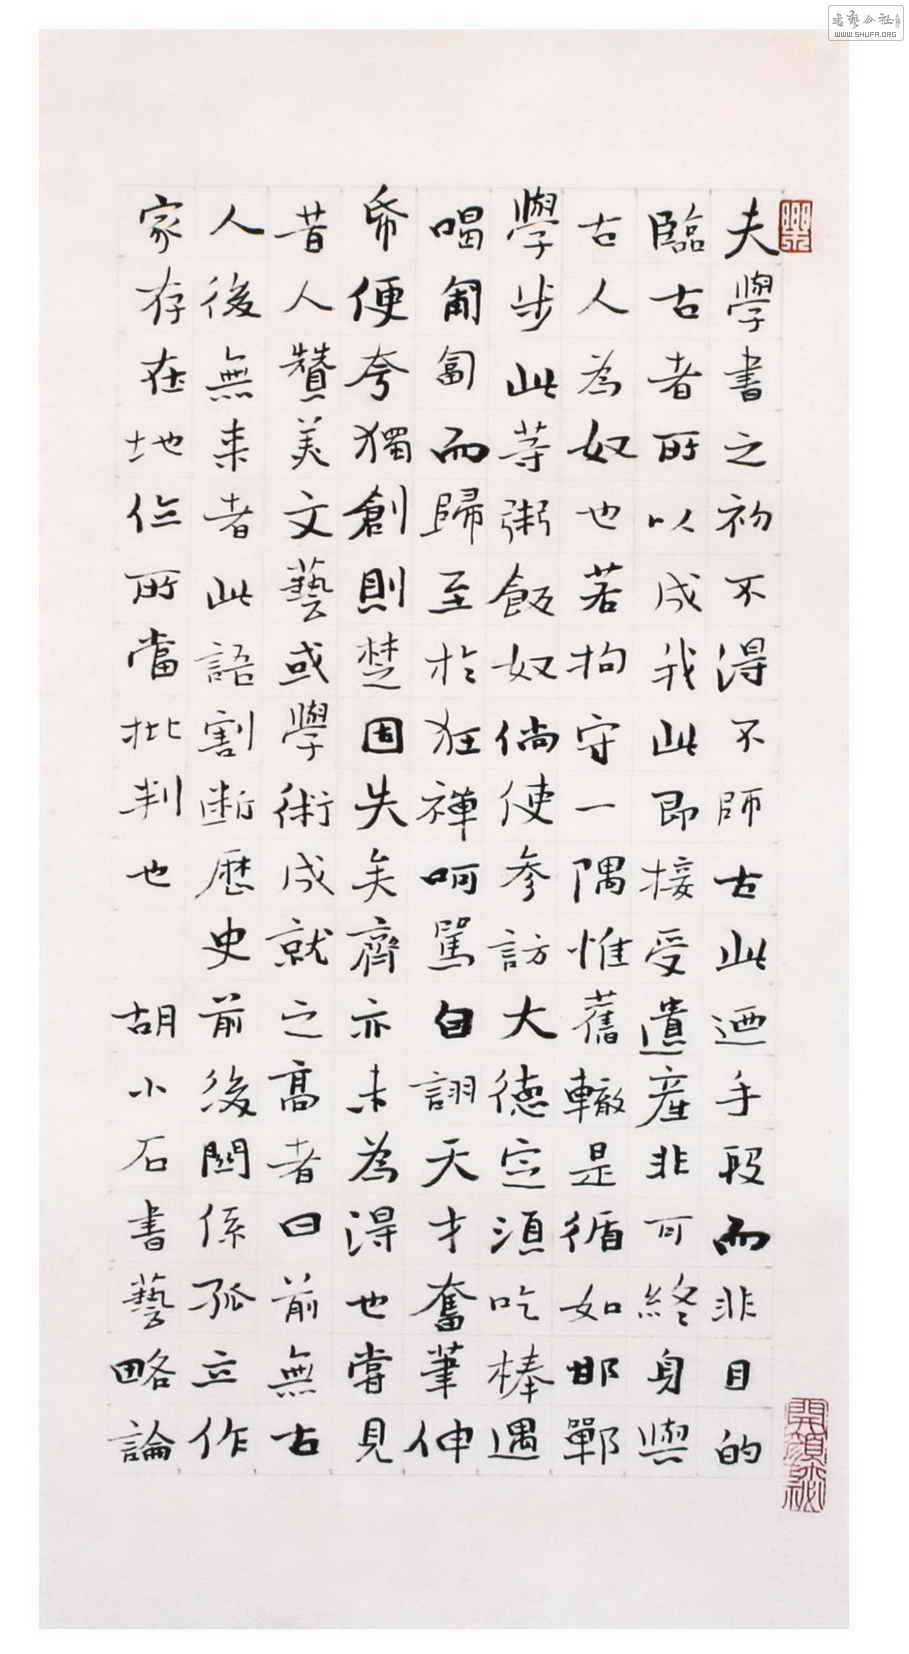 夫學書之初不得不師古此迺手段而非目的
臨古者所以成我此即接受遺產非可終身與
古人為奴也若拘守一隅惟舊轍是循如邯鄲
學步此等粥飯奴倘使參訪大德定須吃棒遇
喝匍匐而歸至於狂禪呵罵自詡天才奮筆伸
帋便夸獨創則楚固失矣齊亦未為得也嘗見
昔人贊美文藝或學術成就之高者曰前無古
人後無来者此語割斷歷史前後關係孤立作
家存在地位所當批判也
胡小石書藝略論
書藝公社
WWW.SHUFA.ORG